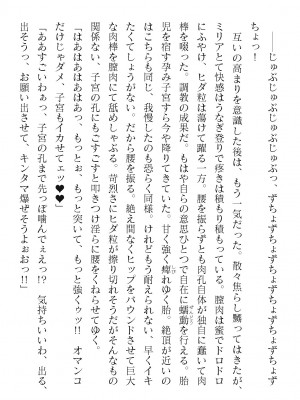 ――じゅぷじゅぷじゅぷじゅぷっ、ずちょずちょずちょずちょずちょっ！
互いの高まりを意識した後は、もう一気だった。散々焦らし嬲ってはきたが、
ミリアとて快感はうなぎ登りで疼きは積もり積もっている。膣肉は蜜でドロドロ
にふやけ、ヒダ粒は蕩けて躍る一方。腰を振らずとも肉孔自体が独自に蠢いて肉
棒を啜った。調教の成果だ。もはや自らの意思ひとつで自在に蠕動を行える。胎
児を宿す孕み子宮すら今や降りてきていた。甘く強く痺れゆく胎。絶頂の前兆だ。
はこちらも同じ、我慢したのも恐らく同様。けれどもう耐えられない、早くイキ
たくてしょうがない。だから腰を振る。絶え間なくヒップをバウンドさせて巨大
な肉棒を膣肉にて舐めしゃぶる。苛烈さにヒダ粒が擦り切れそうだがそんなもの
関係ない、子宮の孔にもごすごすと叩きつけ淫らに腰をくねらせてゆく。
「はあはあはあはあっ、もっとぉ、もっと突いて、もっと強くゥッ!! オマンコ
だけじゃダメ、子宮もイカせてェッ♥♥」
「ああすごいわぁっ、子宮の孔まで先っぽ噛んでぇえっ!? 気持ちいいわ、出る、
出そうっ、お願い出させて、キンタマ爆ぜそうよぉおっ!!」